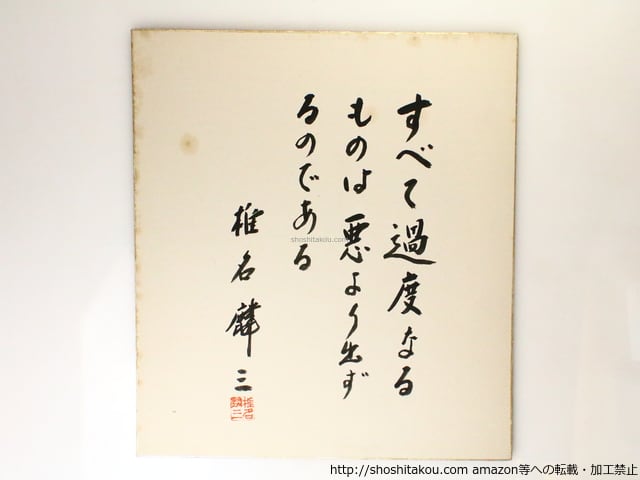 すべて過度なる
ものは悪より出ず
るのである
椎名麟三
椎名
麟三
shoshitakou.com
http://shoshitakou.com amazon等への転載・加工禁止